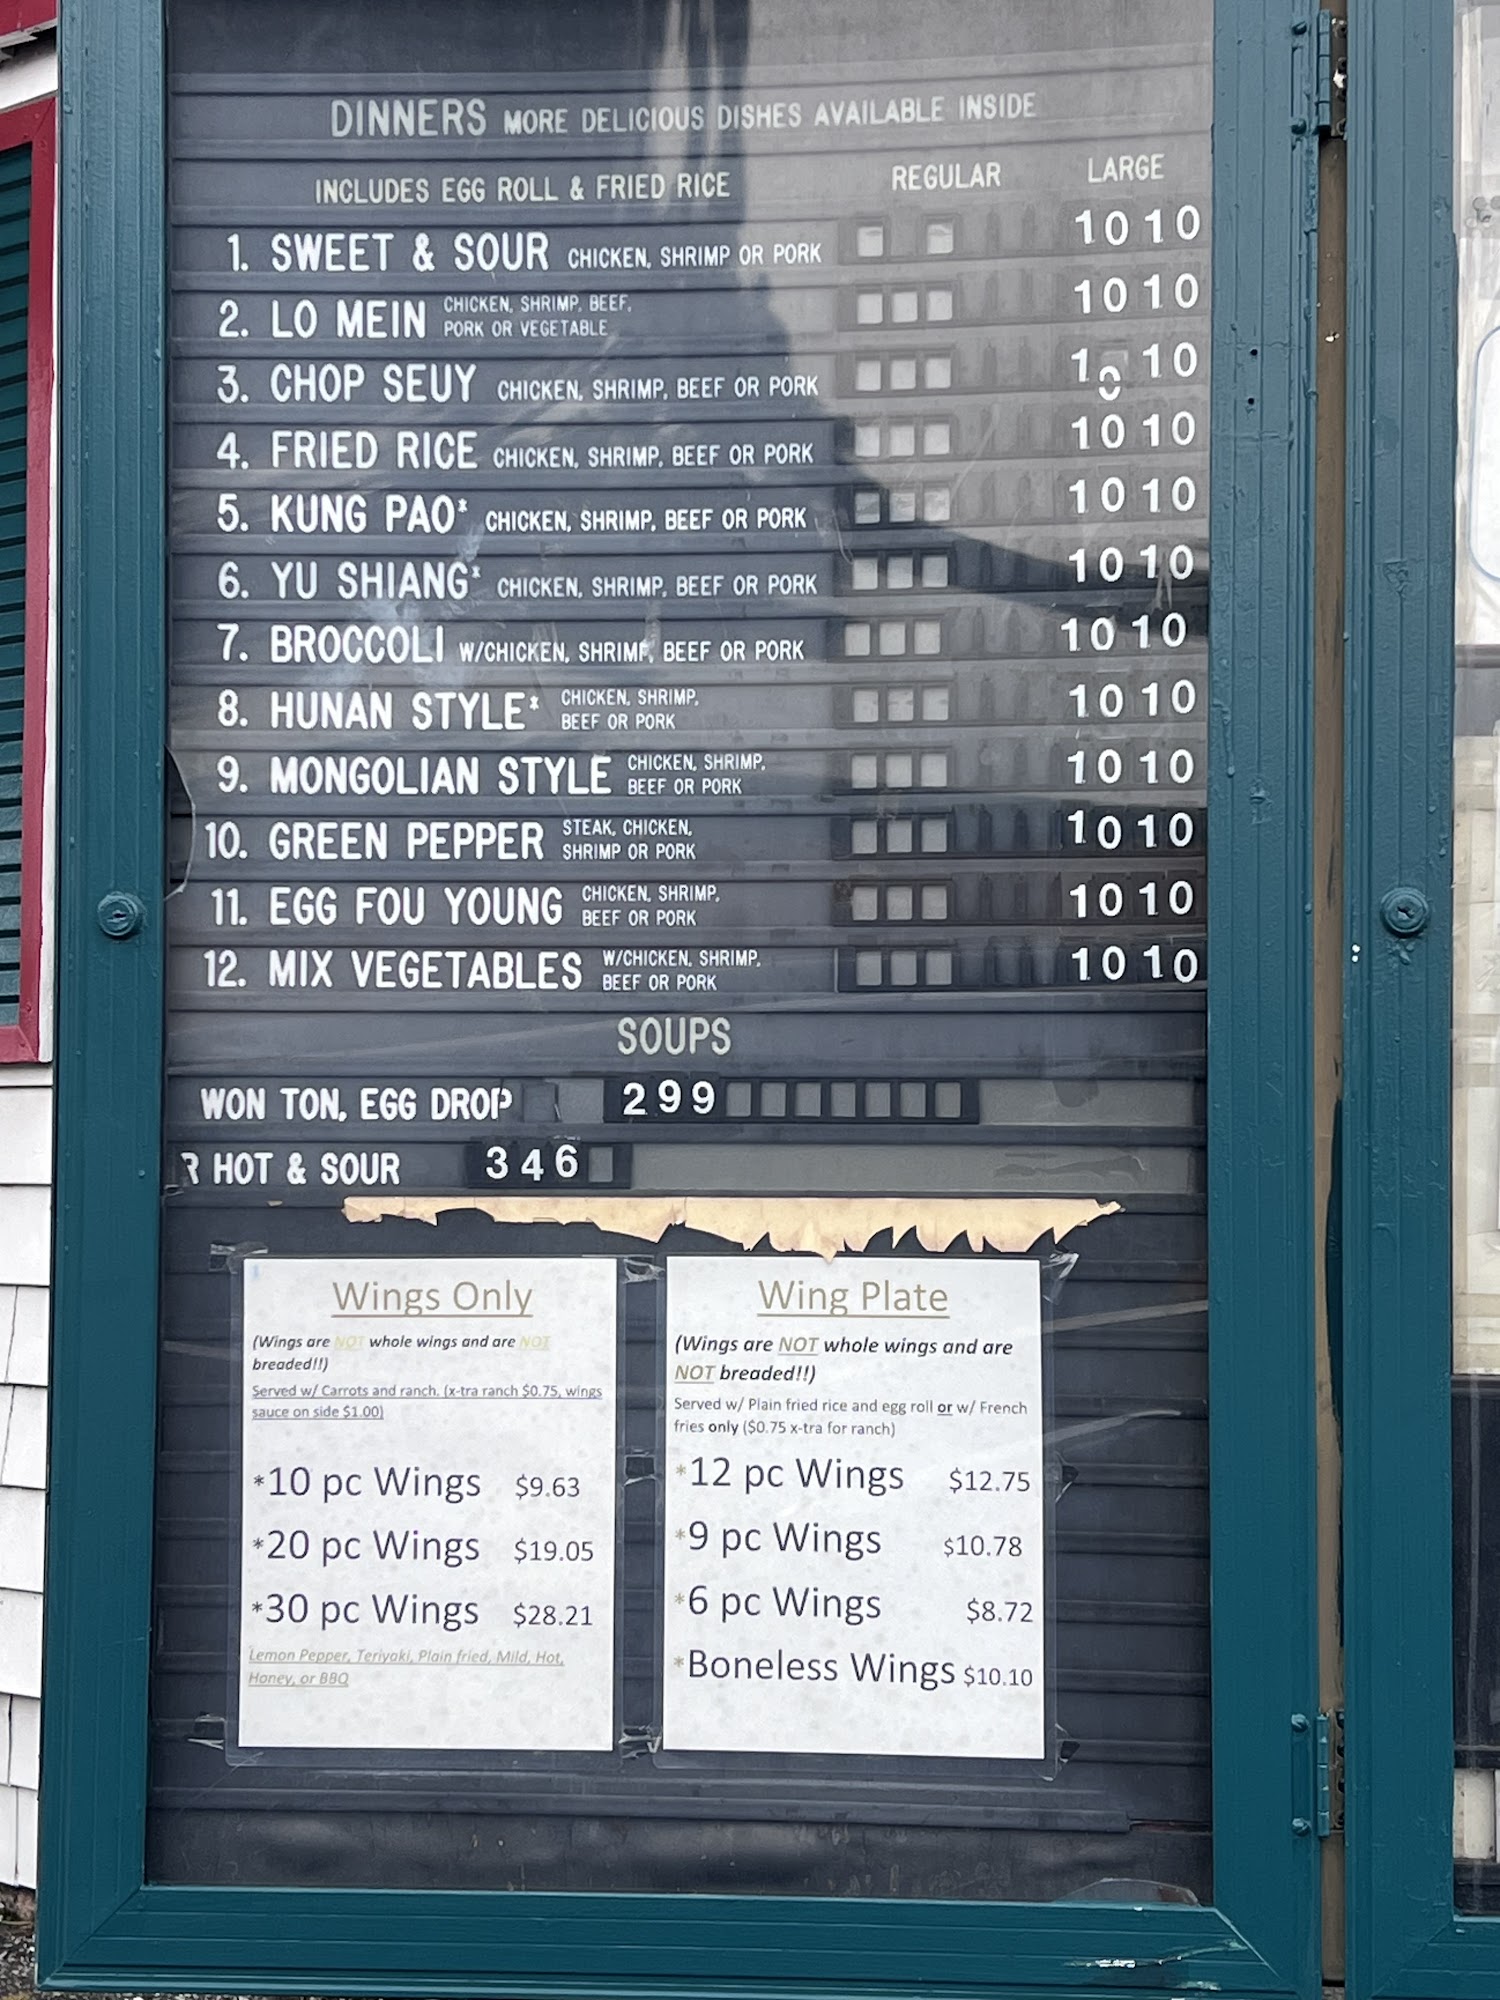 DINNERS MORE DELICIOUS DISHES AVAILABLE INSIDE
INCLUDES EGG ROLL & FRIED RICE REGULAR LARGE
1. SWEET & SOUR CHICKEN, SHRIMP OR PORK 10 10
2. LO MEIN CHICKEN, SHRIMP, BEEF,
PORK OR VEGETABLE 10 10
3. CHOP SEUY CHICKEN, SHRIMP, BEEF OR PORK 10 10
4. FRIED RICE CHICKEN, SHRIMP, BEEF OR PORK 10 10
5. KUNG PAO* CHICKEN, SHRIMP, BEEF OR PORK 10 10
6. YU SHIANG* CHICKEN, SHRIMP, BEEF OR PORK 10 10
7. BROCCOLI W/CHICKEN, SHRIMP, BEEF OR PORK 10 10
8. HUNAN STYLE* CHICKEN, SHRIMP,
BEEF OR PORK 10 10
9. MONGOLIAN STYLE CHICKEN, SHRIMP,
BEEF OR PORK 10 10
10. GREEN PEPPER STEAK, CHICKEN,
SHRIMP OR PORK 10 10
11. EGG FOU YOUNG CHICKEN, SHRIMP,
BEEF OR PORK 10 10
12. MIX VEGETABLES W/CHICKEN, SHRIMP,
BEEF OR PORK 10 10
SOUPS
WON TON, EGG DROP 299
R HOT & SOUR 346
Wings Only
(Wings are NOT whole wings and are NOT
breaded!!)
Served w/ Carrots and ranch. (x-tra ranch $0.75, wings
sauce on side $1.00)
*10 pc Wings $9.63
*20 pc Wings $19.05
*30 pc Wings $28.21
Lemon Pepper, Teriyaki, Plain fried, Mild, Hot,
Honey, or BBQ
Wing Plate
(Wings are NOT whole wings and are
NOT breaded!!)
Served w/ Plain fried rice and egg roll or w/ French
fries only ($0.75 x-tra for ranch)
*12 pc Wings $12.75
*9 pc Wings $10.78
*6 pc Wings $8.72
*Boneless Wings $10.10